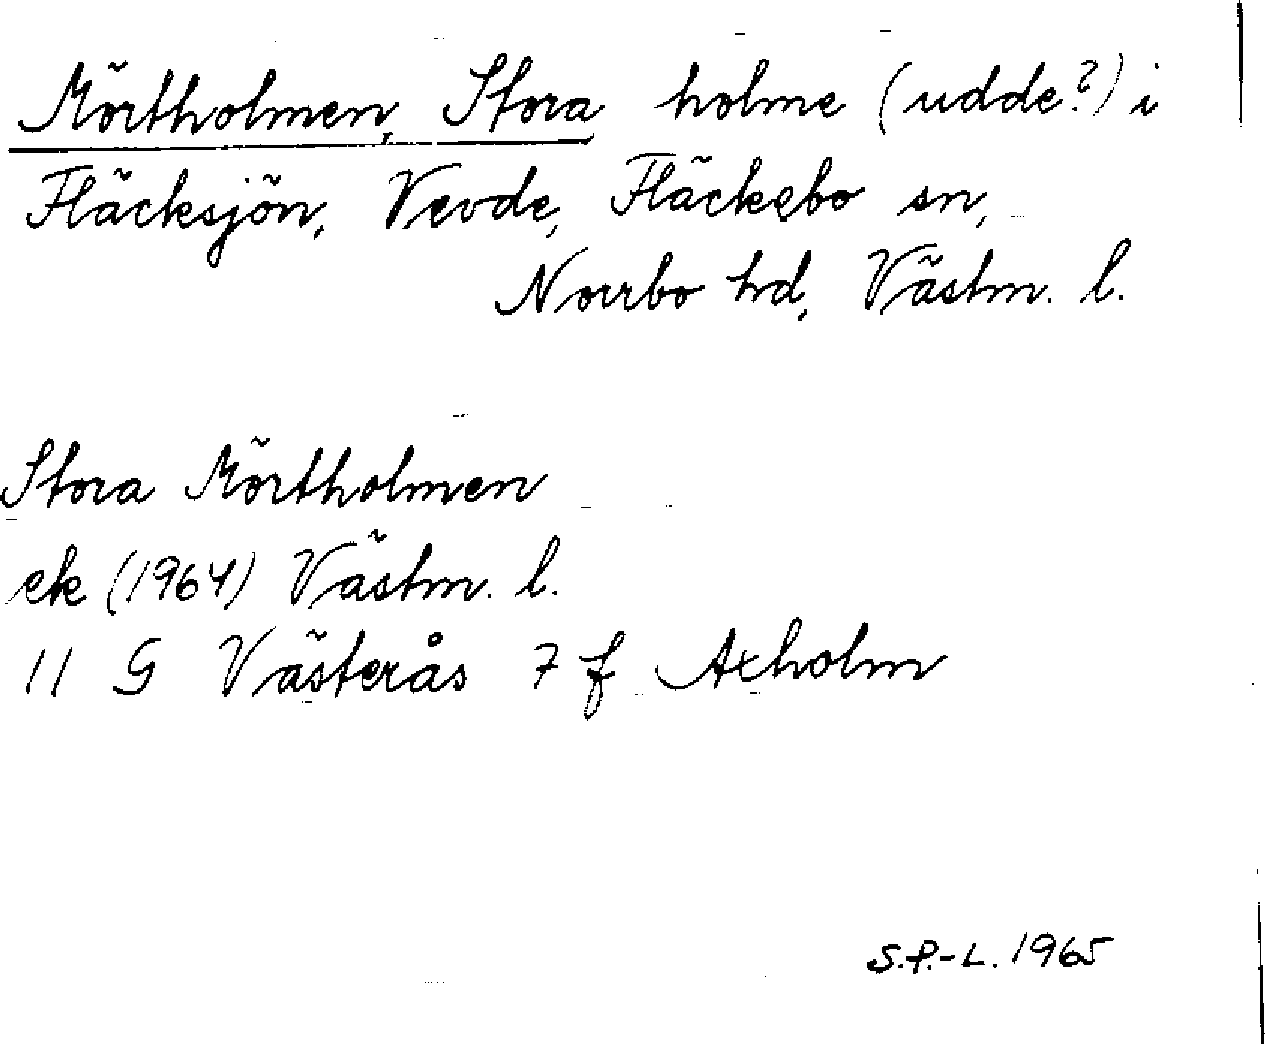 Mörtholmen, Stora holme (udde?) i
Fläcksjön, Vevde, Fläckebo sn,
Norrbo hd, Västm. l.
Stora Mörtholmen
ek (1964) Västm. l.
11 G Västerås 7 f Axholm
S.P.-L. 1965